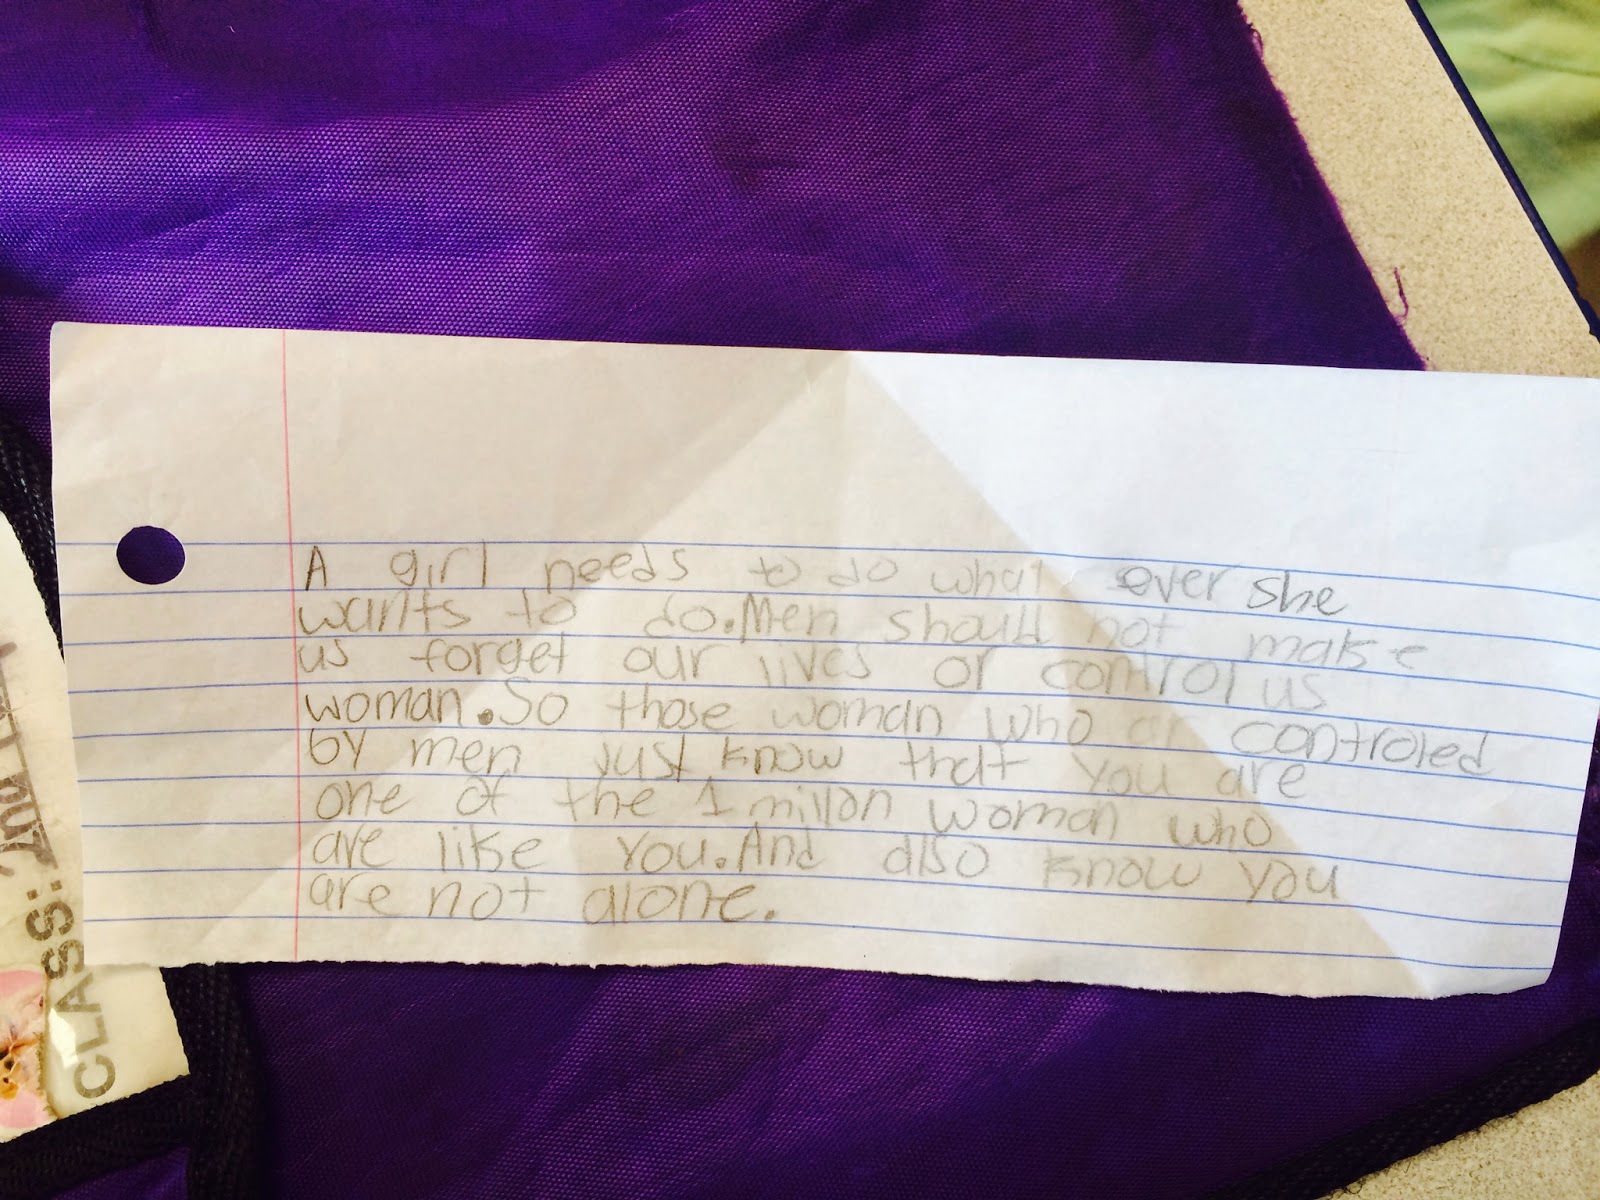 A girl needs to do what ever she
wants to do.Men should not make
us forget our lives or control us
woman.So those woman who ar controled
by men just know that you are
one of the 1 millon woman who
are like you.And also know you
are not alone.
CLASS: